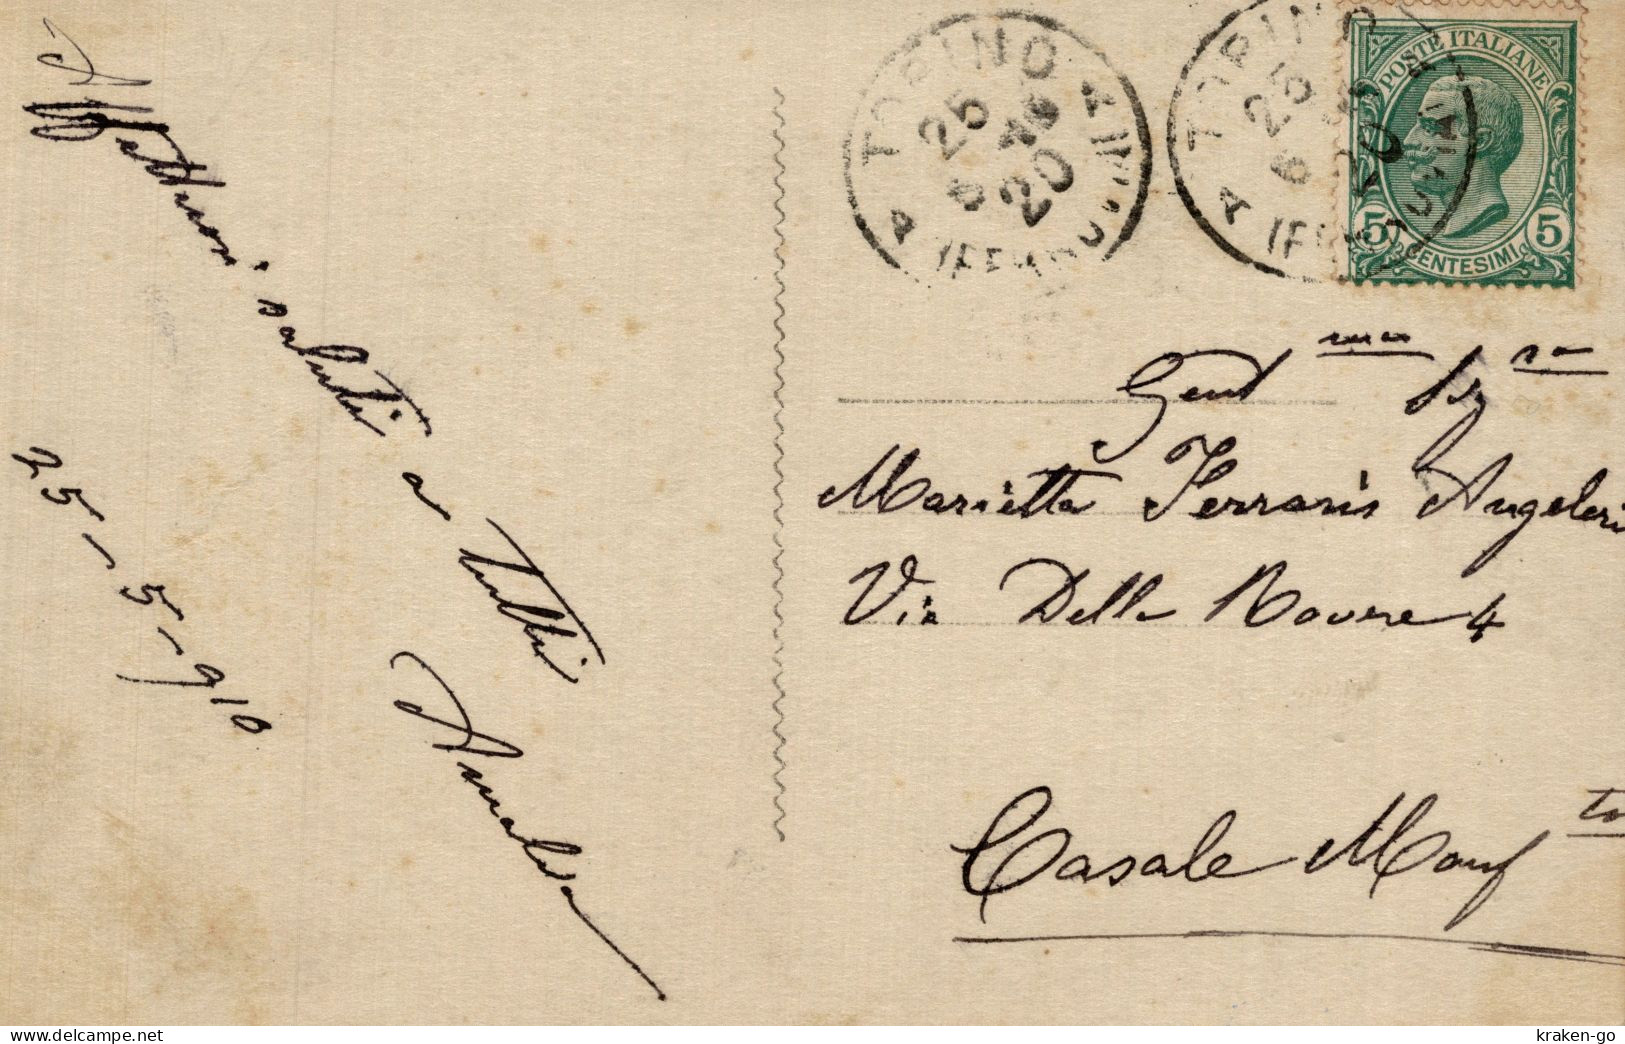 Affettuosi saluti a tutti
Amalia
25-5-910
TORINO
25
5
20
TORINO
25
5
POSTE ITALIANE
5 CENTESIMI 5
Gent ma Sig ra
Marietta Ferraris Angeleri
Via Della Rovere 4
Casale Monf to
www.delcampe.net
kraken-go